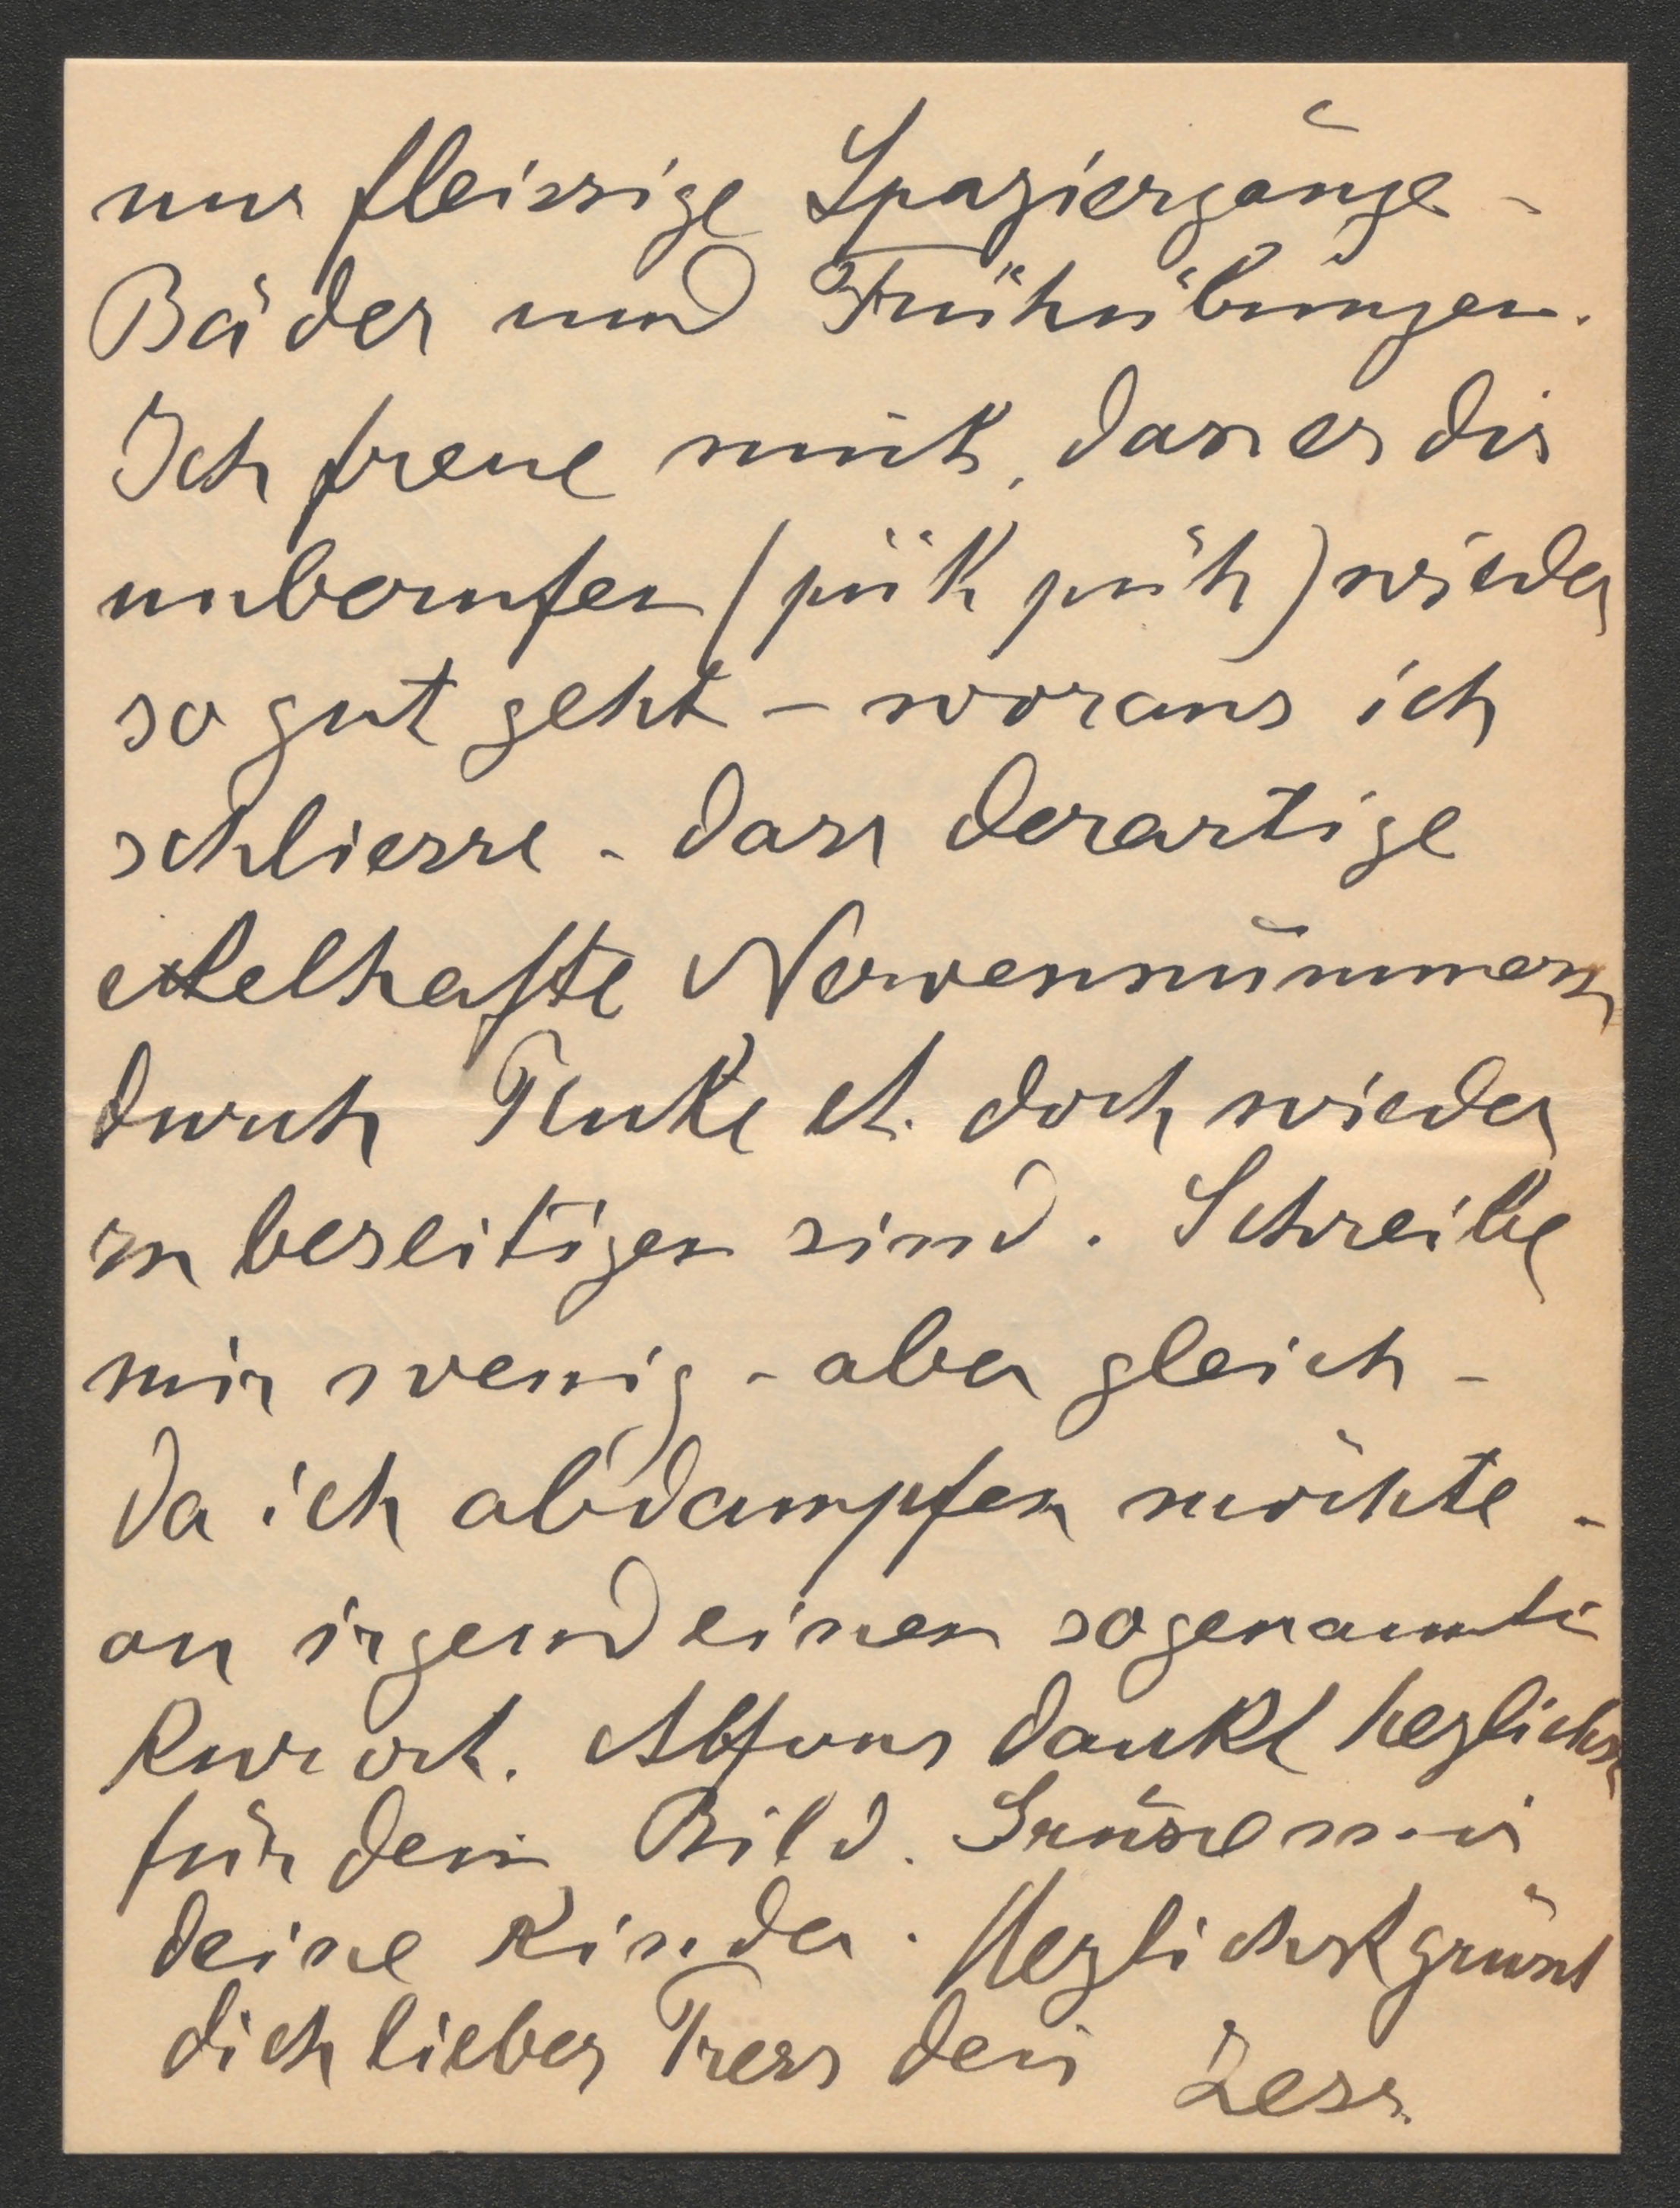 nur fleissige Spaziergänge -
Bäder und Frühübungen.
Ich freue mich, dass es dir
unberufen (püh püh) wieder
so gut geht - woraus ich
schliesse - dass derartige
ekelhafte Nervennummern
durch et. doch wieder
zu beseitigen sind. Schreibe
mir wenig - aber gleich -
da ich abdampfen möchte -
an irgend einen sogenannten
Kurort. Alfons dankt herzlichst
für dein Bild. Grüsse mir
deine Kinder. Herzlichst grüsst
dich lieber Tress dein Zess.